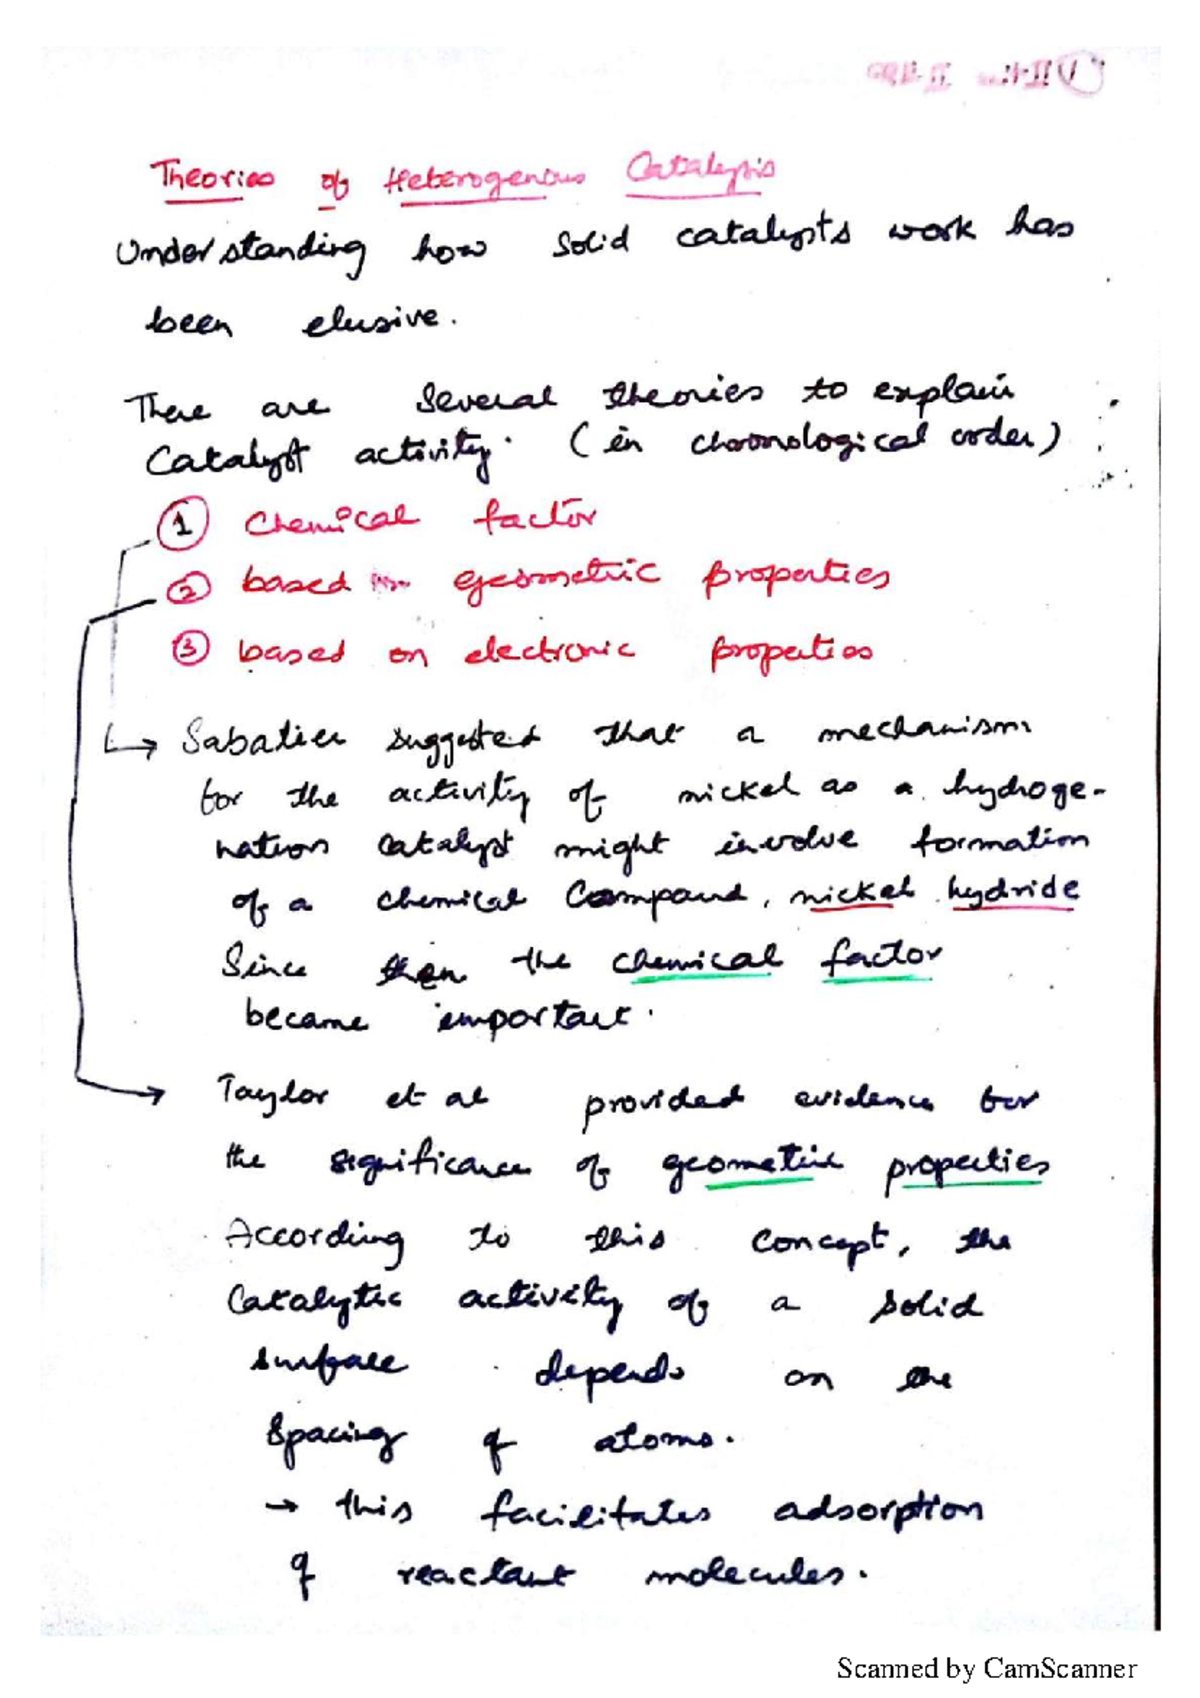 Theories of Heterogenous Catalysis
Understanding how solid catalysts work has
been elusive.
There are several theories to explain
Catalyst activity. (in chronological order)
① Chemical factor
② based on geometric properties
③ based on electronic properties
↳ Sabatier suggested that a mechanism
for the activity of nickel as a hydroge-
nation catalyst might involve formation
of a chemical compound, nickel hydride
Since then the chemical factor
became important.
→ Taylor et al provided evidence for
the significance of geometric properties
According to this concept, the
Catalytic activity of a solid
surface depends on the
spacing of atoms.
→ this facilitates adsorption
of reactant molecules.
Scanned by CamScanner